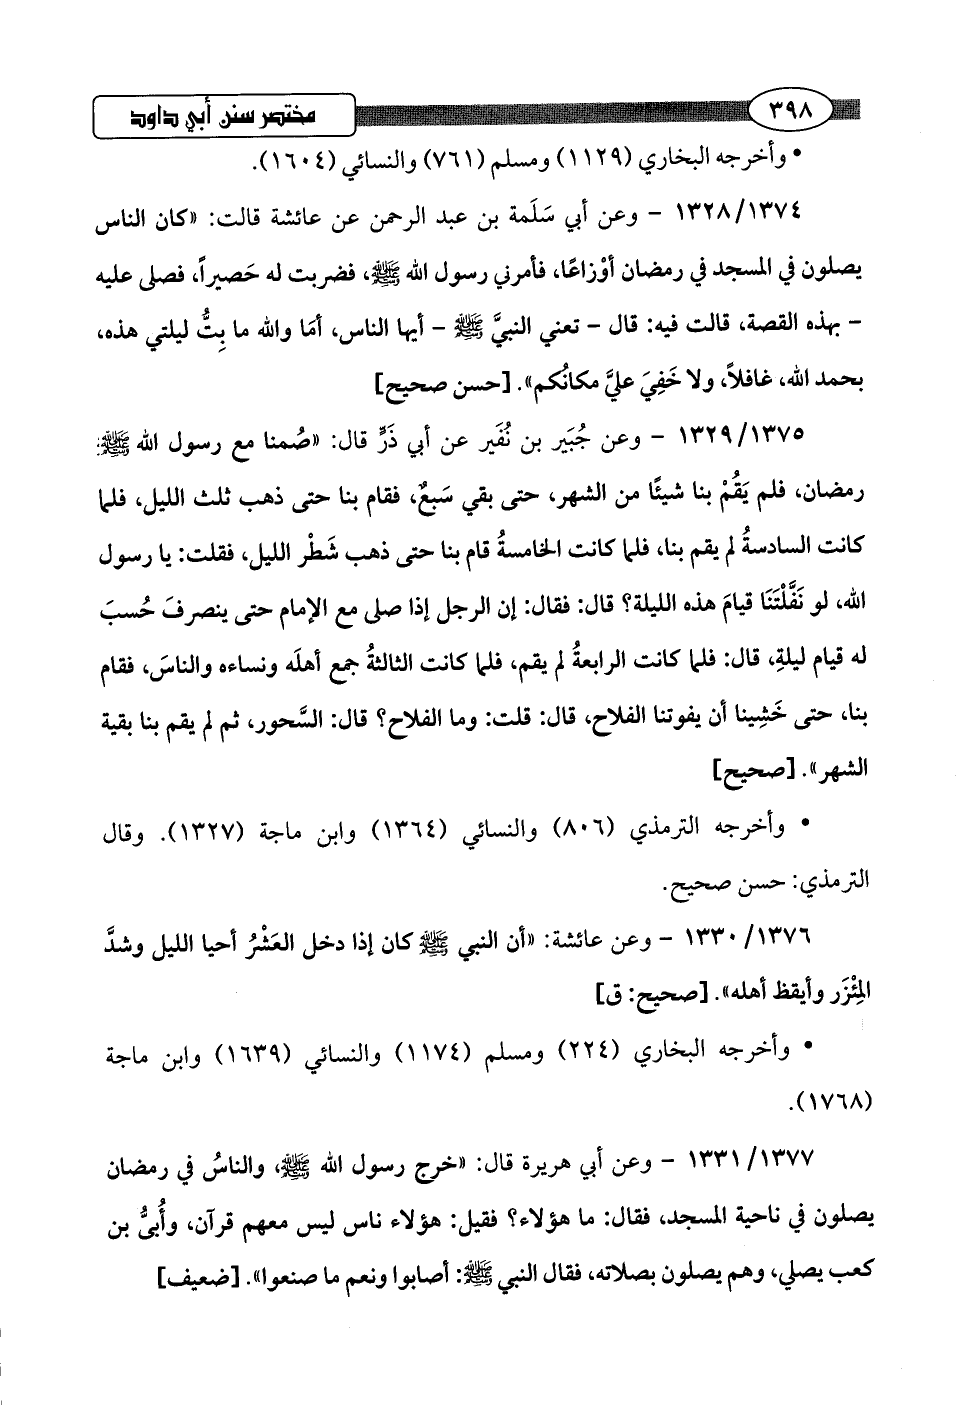 مختصر سنن أبي داود
٣٩٨
• وأخرجه البخاري (١١٢٩) ومسلم (٧٦١) والنسائي (١٦٠٤).
١٣٢٨/١٣٧٤ - وعن أبي سَلَمة بن عبد الرحمن عن عائشة قالت: «كان الناس
يصلون في المسجد في رمضان أوْزاعًا، فأمرني رسول الله ﷺ، فضربت له حَصيراً، فصلى عليه
- بهذه القصة، قالت فيه: قال - تعني النبيَّ ﷺ - أيها الناس، أمَا والله ما بِتُّ ليلتي هذه،
بحمد الله، غافلاً، ولا خَفِيَ عليَّ مكانُكم». [حسن صحيح]
١٣٢٩/١٣٧٥ - وعن جُبَير بن نُفَير عن أبي ذَرٍّ قال: «صُمنا مع رسول الله ﷺ:
رمضان، فلم يَقُمْ بنا شيئًا من الشهر، حتى بقي سَبعٌ، فقام بنا حتى ذهب ثلث الليل، فلما
كانت السادسةُ لم يقم بنا، فلما كانت الخامسةُ قام بنا حتى ذهب شَطْر الليل، فقلت: يا رسول
الله، لو نَفَّلْتَنَا قيامَ هذه الليلة؟ قال: فقال: إن الرجل إذا صلى مع الإمام حتى ينصرفَ حُسبَ
له قيام ليلةِ، قال: فلما كانت الرابعةُ لم يقم، فلما كانت الثالثةُ جمع أهلَه ونساءه والناسَ، فقام
بنا، حتى خَشِينا أن يفوتنا الفلاح، قال: قلت: وما الفلاح؟ قال: السَّحور، ثم لم يقم بنا بقية
الشهر». [صحيح]
• وأخرجه الترمذي (٨٠٦) والنسائي (١٣٦٤) وابن ماجة (١٣٢٧). وقال
الترمذي: حسن صحيح.
١٣٣٠/١٣٧٦ - وعن عائشة: «أن النبي ﷺ كان إذا دخل العَشْرُ أحيا الليل وشدَّ
المِئْزَر وأيقظ أهله». [صحيح: ق]
• وأخرجه البخاري (٢٢٤) ومسلم (١١٧٤) والنسائي (١٦٣٩) وابن ماجة
(١٧٦٨).
١٣٣١/١٣٧٧ - وعن أبي هريرة قال: «خرج رسول الله ﷺ، والناسُ في رمضان
يصلون في ناحية المسجد، فقال: ما هؤلاء؟ فقيل: هؤلاء ناس ليس معهم قرآن، وأُبيُّ بن
كعب يصلي، وهم يصلون بصلاته، فقال النبي ﷺ: أصابوا ونعم ما صنعوا». [ضعيف]